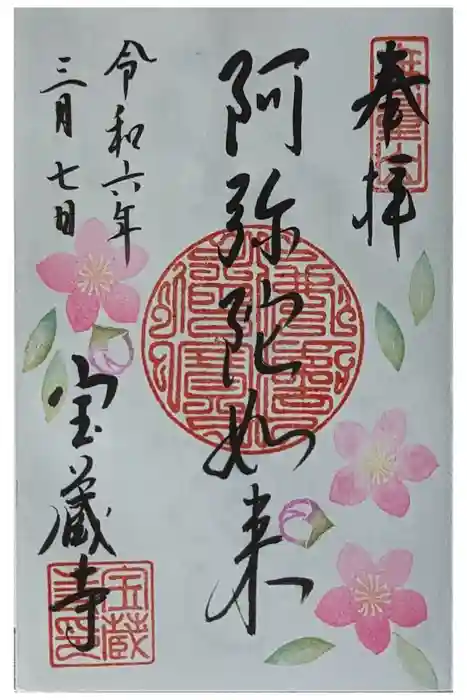 奉拝
阿弥陀如来
令和六年
三月七日
宝蔵寺
宝蔵
寺印